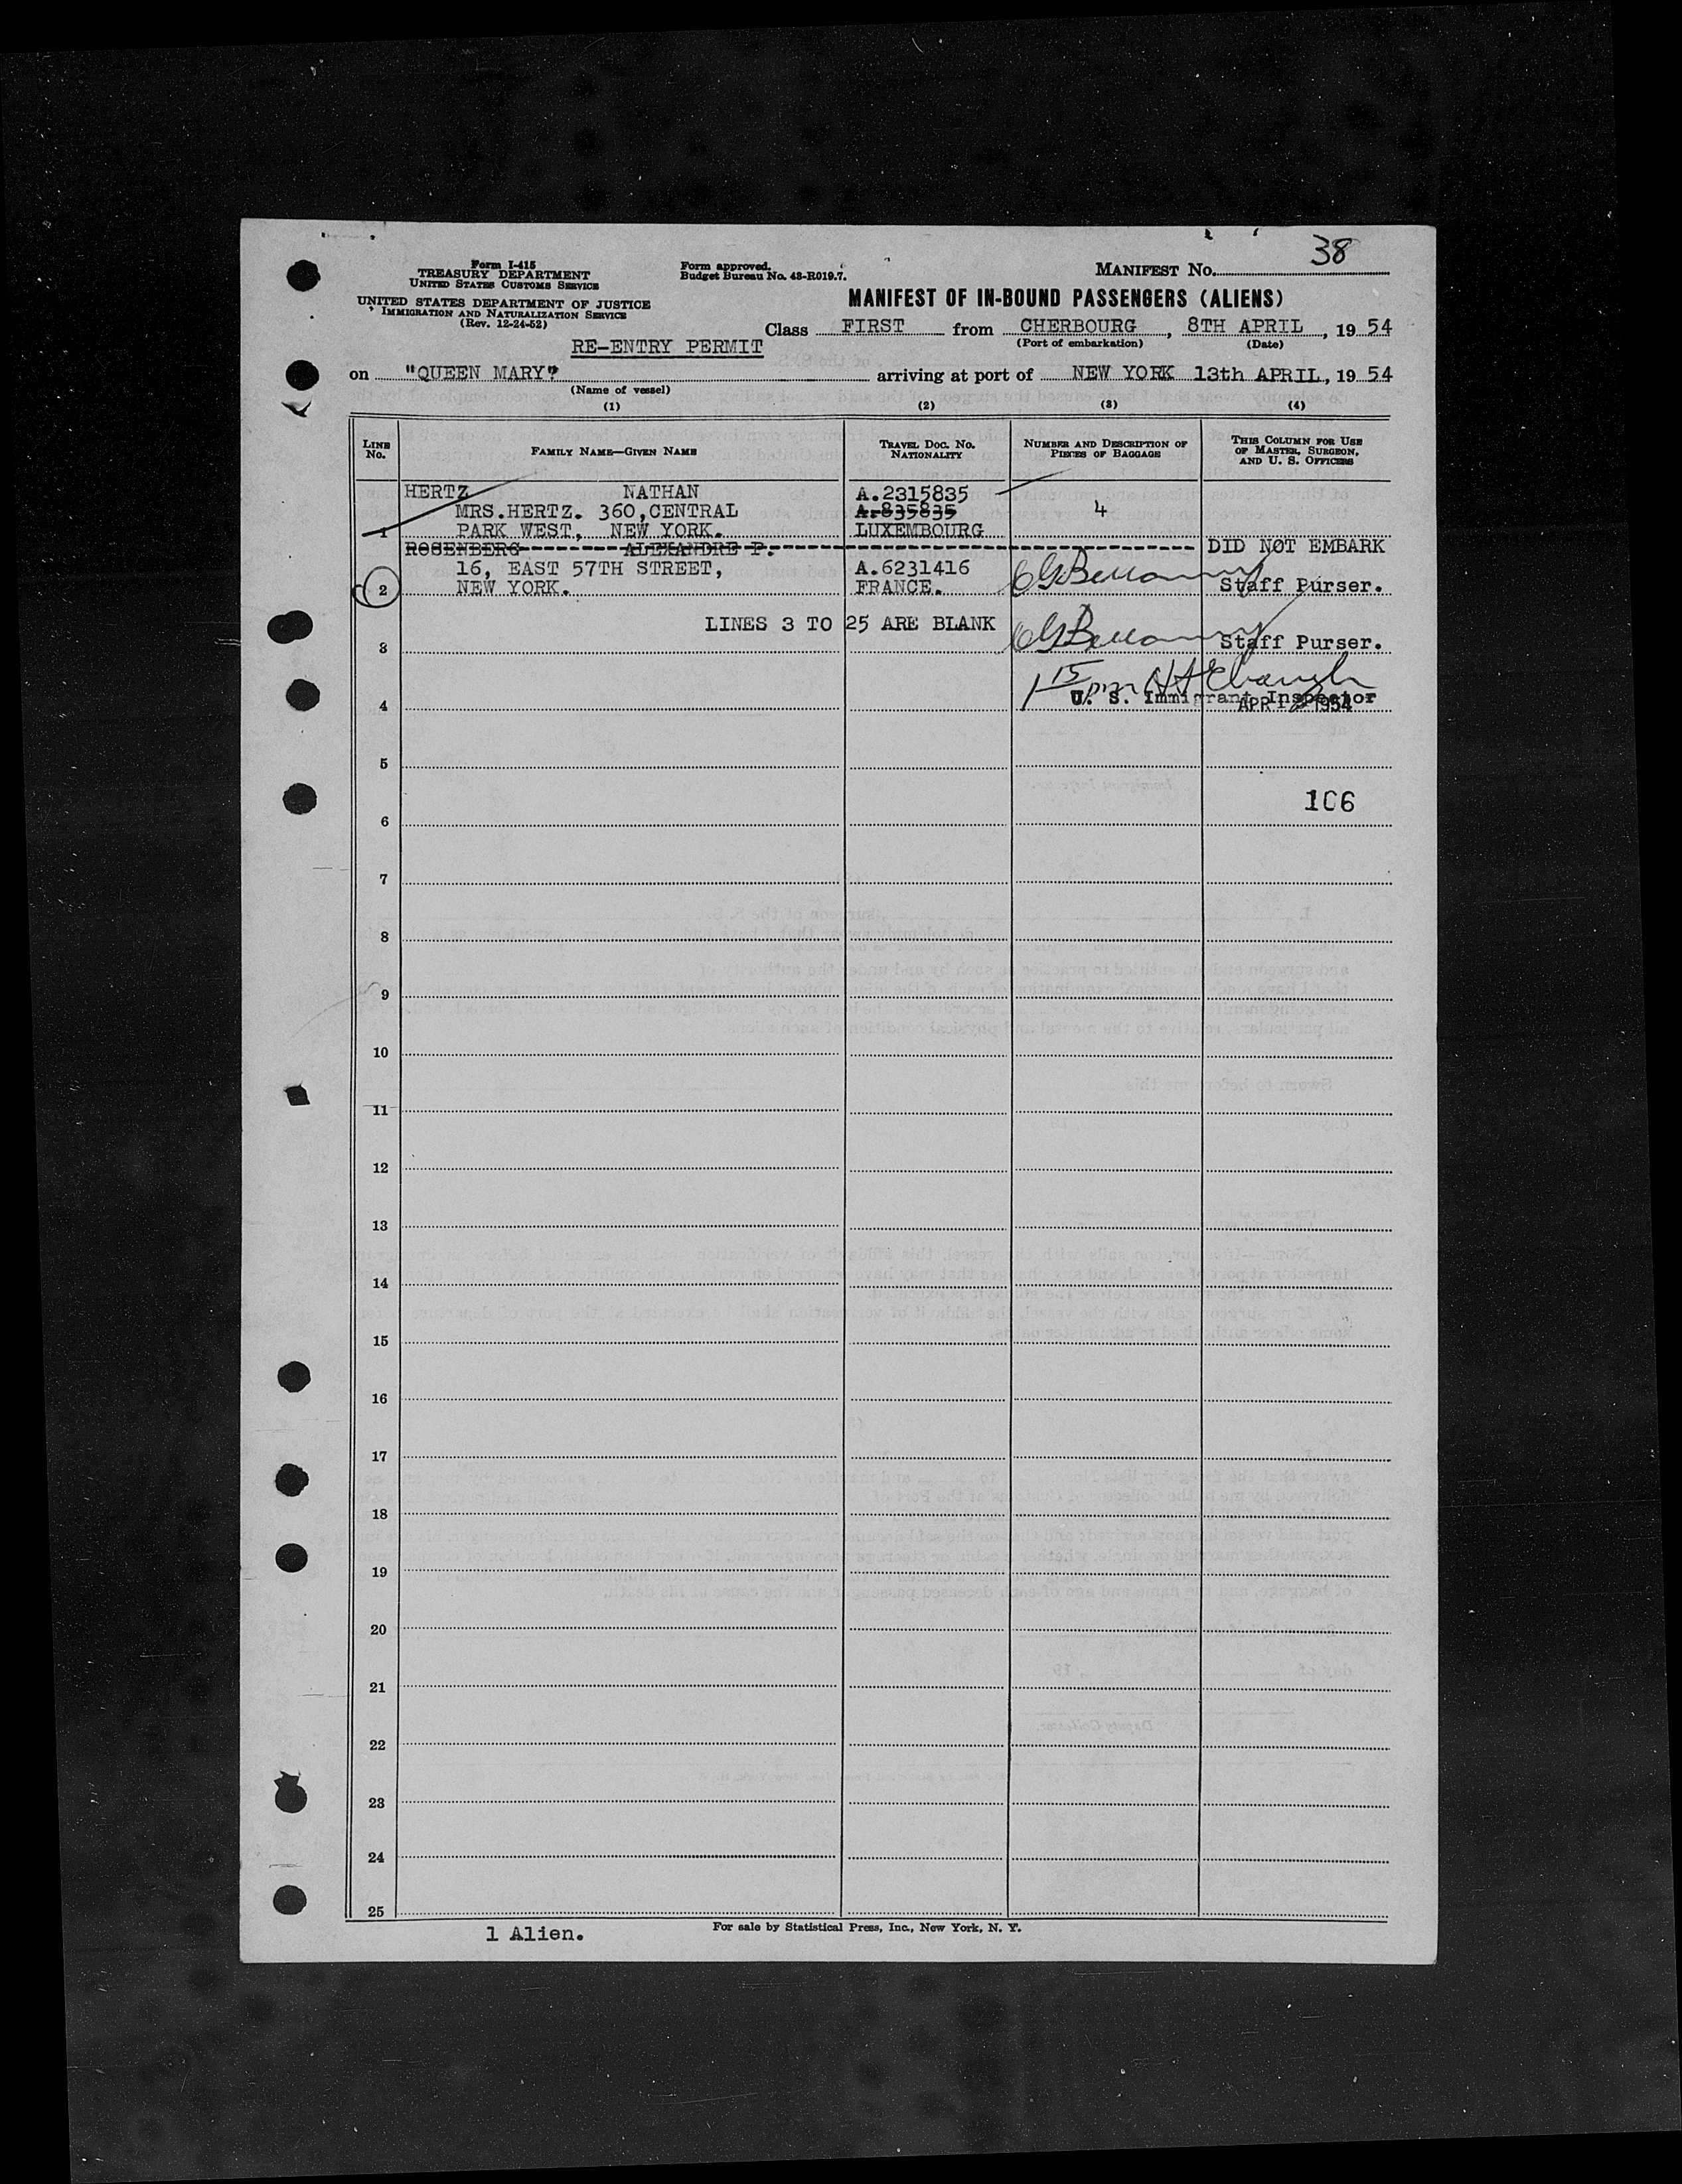 38
Form I-415
TREASURY DEPARTMENT
UNITED STATES CUSTOMS SERVICE
UNITED STATES DEPARTMENT OF JUSTICE
IMMIGRATION AND NATURALIZATION SERVICE
(Rev. 12-24-52)
Form approved.
Budget Bureau No. 43-R019.7.
MANIFEST No.
MANIFEST OF IN-BOUND PASSENGERS (ALIENS)
Class FIRST from CHERBOURG, 8TH APRIL, 19 54
(Port of embarkation) (Date)
RE-ENTRY PERMIT
on "QUEEN MARY" arriving at port of NEW YORK 13th APRIL, 19 54
(Name of vessel)
(1) (2) (3) (4)
LINE No. FAMILY NAME—GIVEN NAME TRAVEL DOC. No. NATIONALITY NUMBER AND DESCRIPTION OF PIECES OF BAGGAGE THIS COLUMN FOR USE OF MASTER, SURGEON, AND U. S. OFFICERS
HERTZ NATHAN A.2315835
MRS.HERTZ. 360,CENTRAL A.835835 4
1 PARK WEST, NEW YORK. LUXEMBOURG
ROSENBERG ALEXANDRE P. DID NOT EMBARK
16, EAST 57TH STREET, A.6231416
2 NEW YORK. FRANCE. Staff Purser.
LINES 3 TO 25 ARE BLANK
3 Staff Purser.
1 15 pm
4 U. S. Immigrant Inspector
APR 1954
5
106
6
7
8
9
10
11
12
13
14
15
16
17
18
19
20
21
22
23
24
25
1 Alien.
For sale by Statistical Press, Inc., New York, N. Y.